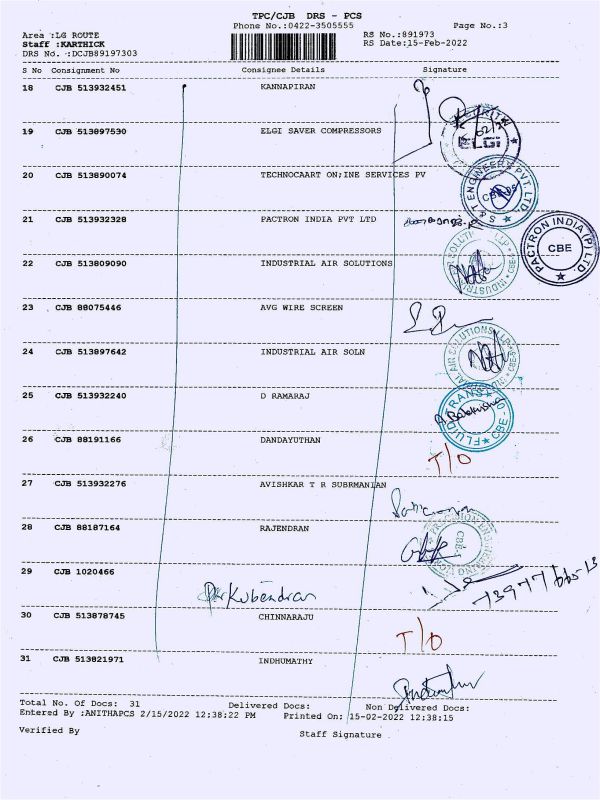 TPC/CJB DRS - PCS
Phone No.:0422-3505555 Page No.:3
Area :LG ROUTE RS No:891973
Staff :KARTHICK RS Date:15-Feb-2022
DRS No. :DCJB89197303
S No Consignment No Consignee Details Signature
18 CJB 513932451 KANNAPIRAN
19 CJB 513897530 ELGI SAVER COMPRESSORS
ELGI
20 CJB 513890074 TECHNOCAART ON;INE SERVICES PV
S & T ENGINEERS PVT. LTD.
21 CJB 513932328 PACTRON INDIA PVT LTD
PACTRON INDIA (P) LTD
CBE
22 CJB 513809090 INDUSTRIAL AIR SOLUTIONS
23 CJB 88075446 AVG WIRE SCREEN
24 CJB 513897642 INDUSTRIAL AIR SOLN
25 CJB 513932240 D RAMARAJ
26 CJB 88191166 DANDAYUTHAN
T/O
27 CJB 513932276 AVISHKAR T R SUBRMANIAN
28 CJB 88187164 RAJENDRAN
29 CJB 1020466
Kubendran
30 CJB 513878745 CHINNARAJU
T/O
31 CJB 513821971 INDHUMATHY
Total No. Of Docs: 31 Delivered Docs: Non Delivered Docs:
Entered By :ANITHAPCS 2/15/2022 12:38:22 PM Printed On: 15-02-2022 12:38:15
Verified By Staff Signature